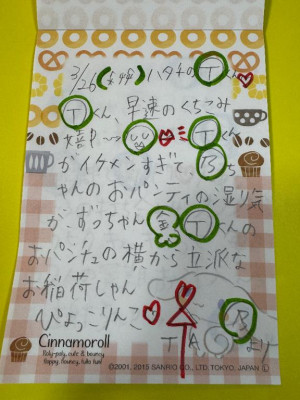 3/26(木)ハタチのTくん
Tくん、早速のくちこみ
嬉中〜 Tくん
がイケメンすぎてBち
ゃんのおパンティの湿り気
が、ずっちゃん金Tくんの
おパンチュの横から立派な
お稲荷しゃん
ぴょっこりんこ
TA Bより
Cinnamoroll
Roly-poly, cute & bouncy
floppy, flouncy, tutta tua!
©2001, 2015 SANRIO CO., LTD. TOKYO, JAPAN Ⓛ